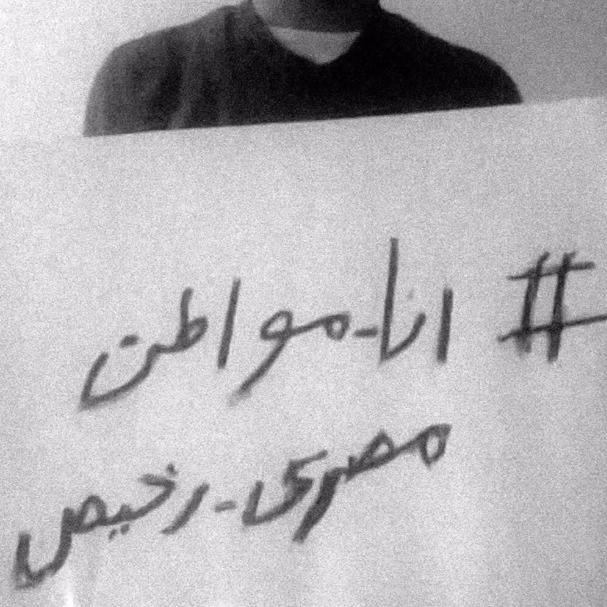 # انا-مواطن
مصرى-رخيص